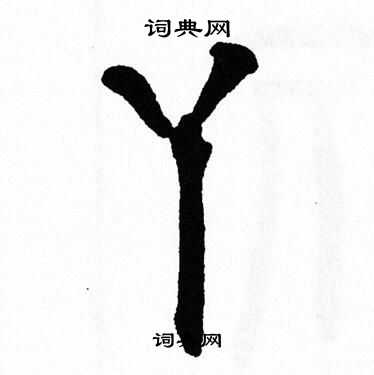 词典网
丫
词典网